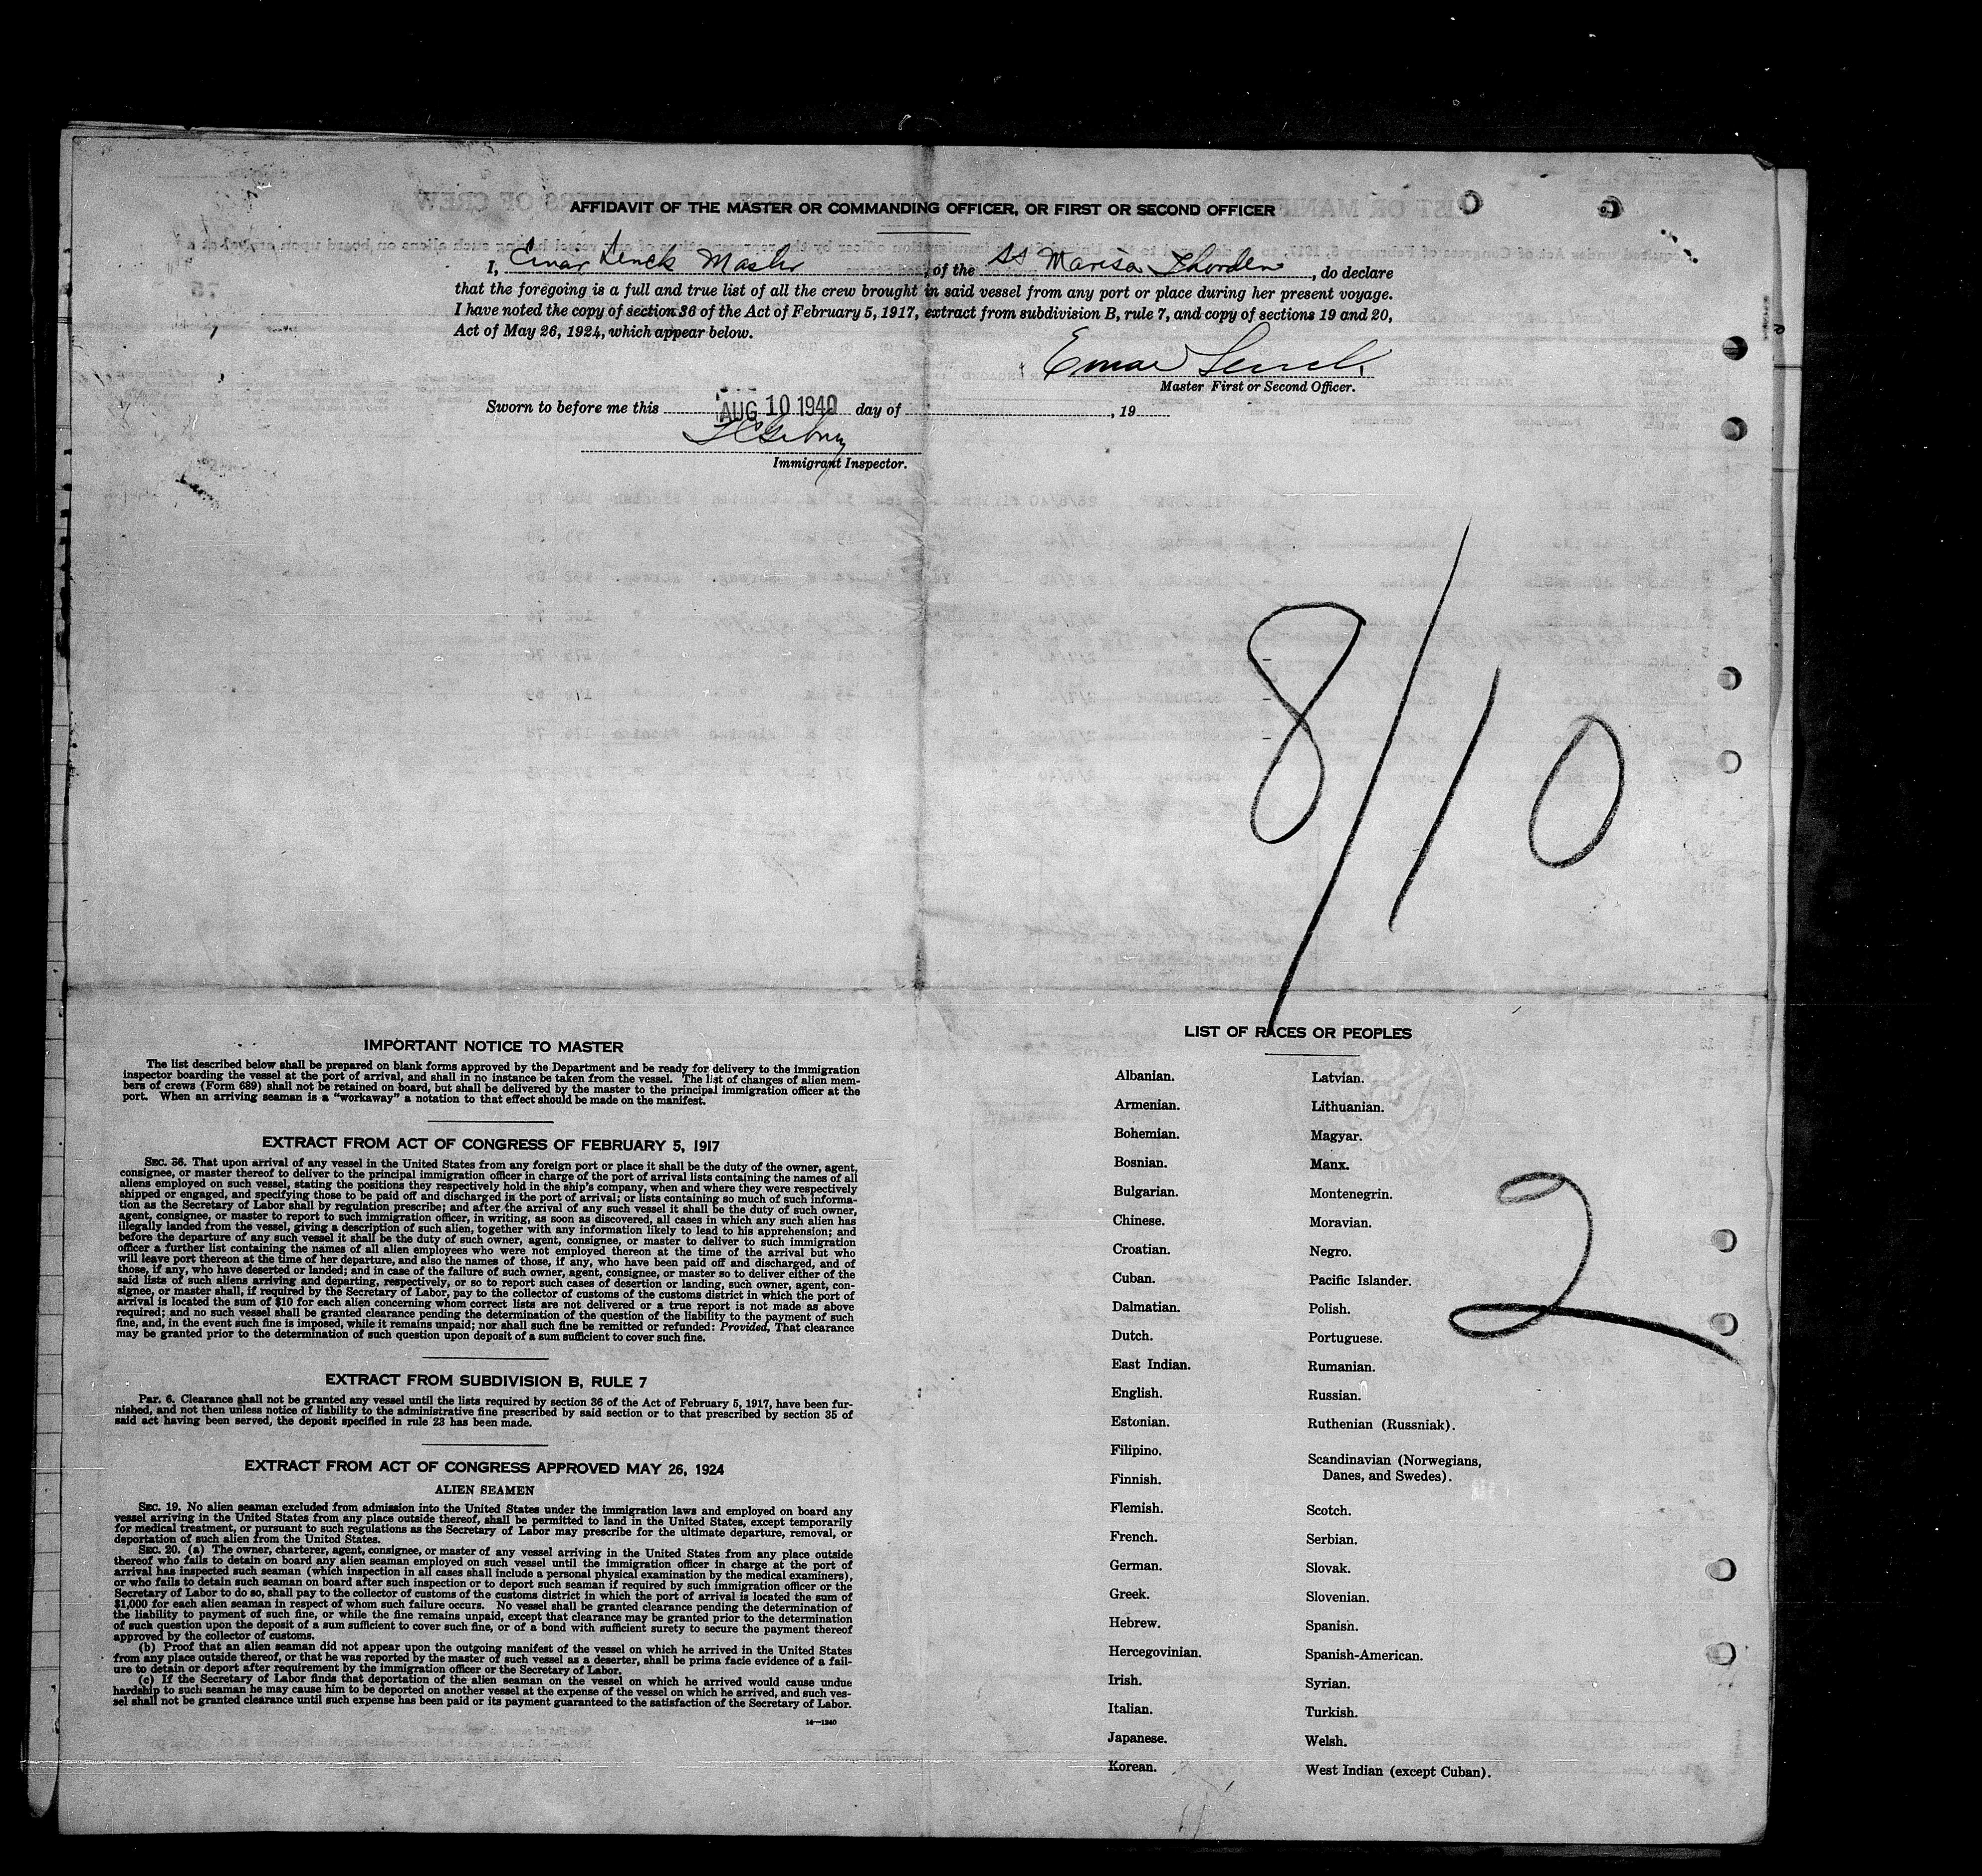 AFFIDAVIT OF THE MASTER OR COMMANDING OFFICER, OR FIRST OR SECOND OFFICER
I, Einar Lenck Master, of the SS Marisa Thorden, do declare
that the foregoing is a full and true list of all the crew brought in said vessel from any port or place during her present voyage.
I have noted the copy of section 36 of the Act of February 5, 1917, extract from subdivision B, rule 7, and copy of sections 19 and 20,
Act of May 26, 1924, which appear below.
Einar Lenck
Master First or Second Officer.
Sworn to before me this AUG 10 1940 day of , 19
Immigrant Inspector.
8/10
IMPORTANT NOTICE TO MASTER
The list described below shall be prepared on blank forms approved by the Department and be ready for delivery to the immigration
inspector boarding the vessel at the port of arrival, and shall in no instance be taken from the vessel. The list of changes of alien mem-
bers of crews (Form 689) shall not be retained on board, but shall be delivered by the master to the principal immigration officer at the
port. When an arriving seaman is a "workaway" a notation to that effect should be made on the manifest.
EXTRACT FROM ACT OF CONGRESS OF FEBRUARY 5, 1917
SEC. 36. That upon arrival of any vessel in the United States from any foreign port or place it shall be the duty of the owner, agent,
consignee, or master thereof to deliver to the principal immigration officer in charge of the port of arrival lists containing the names of all
aliens employed on such vessel, stating the positions they respectively hold in the ship's company, when and where they were respectively
shipped or engaged, and specifying those to be paid off and discharged in the port of arrival; or lists containing so much of such informa-
tion as the Secretary of Labor shall by regulation prescribe; and after the arrival of any such vessel it shall be the duty of such owner,
agent, consignee, or master to report to such immigration officer, in writing, as soon as discovered, all cases in which any such alien has
illegally landed from the vessel, giving a description of such alien, together with any information likely to lead to his apprehension; and
before the departure of any such vessel it shall be the duty of such owner, agent, consignee, or master to deliver to such immigration
officer a further list containing the names of all alien employees who were not employed thereon at the time of the arrival but who
will leave port thereon at the time of her departure, and also the names of those, if any, who have been paid off and discharged, and of
those, if any, who have deserted or landed; and in case of the failure of such owner, agent, consignee, or master so to deliver either of the
said lists of such aliens arriving and departing, respectively, or so to report such cases of desertion or landing, such owner, agent, con-
signee, or master shall, if required by the Secretary of Labor, pay to the collector of customs of the customs district in which the port of
arrival is located the sum of $10 for each alien concerning whom correct lists are not delivered or a true report is not made as above
required; and no such vessel shall be granted clearance pending the determination of the question of the liability to the payment of such
fine, and, in the event such fine is imposed, while it remains unpaid; nor shall such fine be remitted or refunded: Provided, That clearance
may be granted prior to the determination of such question upon deposit of a sum sufficient to cover such fine.
EXTRACT FROM SUBDIVISION B, RULE 7
Par. 6. Clearance shall not be granted any vessel until the lists required by section 36 of the Act of February 5, 1917, have been fur-
nished, and not then unless notice of liability to the administrative fine prescribed by said section or to that prescribed by section 35 of
said act having been served, the deposit specified in rule 23 has been made.
EXTRACT FROM ACT OF CONGRESS APPROVED MAY 26, 1924
ALIEN SEAMEN
SEC. 19. No alien seaman excluded from admission into the United States under the immigration laws and employed on board any
vessel arriving in the United States from any place outside thereof, shall be permitted to land in the United States, except temporarily
for medical treatment, or pursuant to such regulations as the Secretary of Labor may prescribe for the ultimate departure, removal, or
deportation of such alien from the United States.
SEC. 20. (a) The owner, charterer, agent, consignee, or master of any vessel arriving in the United States from any place outside
thereof who fails to detain on board any alien seaman employed on such vessel until the immigration officer in charge at the port of
arrival has inspected such seaman (which inspection in all cases shall include a personal physical examination by the medical examiners),
or who fails to detain such seaman on board after such inspection or to deport such seaman if required by such immigration officer or the
Secretary of Labor to do so, shall pay to the collector of customs of the customs district in which the port of arrival is located the sum of
$1,000 for each alien seaman in respect of whom such failure occurs. No vessel shall be granted clearance pending the determination of
the liability to payment of such fine, or while the fine remains unpaid, except that clearance may be granted prior to the determination
of such question upon the deposit of a sum sufficient to cover such fine, or of a bond with sufficient surety to secure the payment thereof
approved by the collector of customs.
(b) Proof that an alien seaman did not appear upon the outgoing manifest of the vessel on which he arrived in the United States
from any place outside thereof, or that he was reported by the master of such vessel as a deserter, shall be prima facie evidence of a fail-
ure to detain or deport after requirement by the immigration officer or the Secretary of Labor.
(c) If the Secretary of Labor finds that deportation of the alien seaman on the vessel on which he arrived would cause undue
hardship to such seaman he may cause him to be deported on another vessel at the expense of the vessel on which he arrived, and such ves-
sel shall not be granted clearance until such expense has been paid or its payment guaranteed to the satisfaction of the Secretary of Labor.
14—1240
LIST OF RACES OR PEOPLES
Albanian.
Armenian.
Bohemian.
Bosnian.
Bulgarian.
Chinese.
Croatian.
Cuban.
Dalmatian.
Dutch.
East Indian.
English.
Estonian.
Filipino.
Finnish.
Flemish.
French.
German.
Greek.
Hebrew.
Hercegovinian.
Irish.
Italian.
Japanese.
Korean.
Latvian.
Lithuanian.
Magyar.
Manx.
Montenegrin.
Moravian.
Negro.
Pacific Islander.
Polish.
Portuguese.
Rumanian.
Russian.
Ruthenian (Russniak).
Scandinavian (Norwegians,
Danes, and Swedes).
Scotch.
Serbian.
Slovak.
Slovenian.
Spanish.
Spanish-American.
Syrian.
Turkish.
Welsh.
West Indian (except Cuban).
2